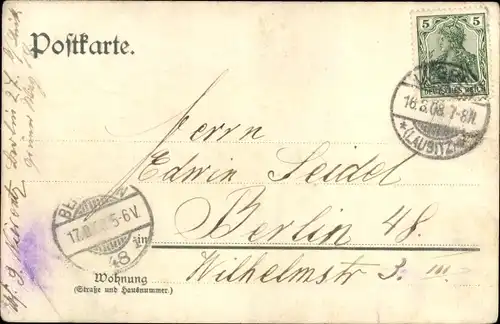 Postkarte.
5
DEUTSCHES REICH
16.3.08. 7-8N
*(LAUSITZ)
Herrn
Edwin Seidel
in Berlin 48.
Wilhelmstr 3. III.
17. 5-6V.
48
Wohnung
(Straße und Hausnummer.)